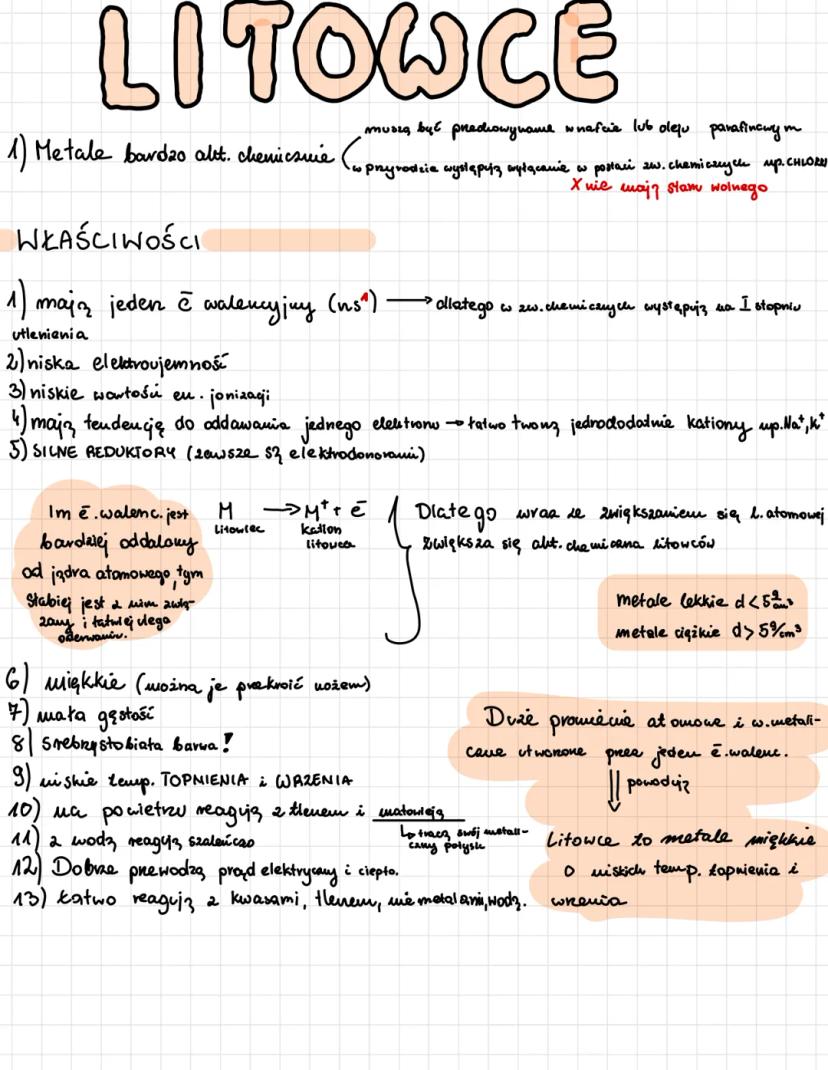 LITOWCE
muszą być przechowywane w nafcie lub oleju parafinowym
1) Metale bardzo akt. chemicznie
w przyrodzie występują wyłącznie w postaci zw. chemicznych np. CHLORKI
X nie mają stanu wolnego
WŁAŚCIWOŚCI
1) mają jeden ē walencyjny (ns¹) → dlatego w zw. chemicznych występują na I stopniu
utlenienia
2) niska elektroujemność
3) niskie wartości en. jonizacji
4) mają tendencję do oddawania jednego elektronu → łatwo tworzą jednododatnie kationy np. Na⁺, K⁺
5) SILNE REDUKTORY (zawsze są elektrodonorami)
Im ē. walenc. jest
bardziej oddalony
od jądra atomowego, tym
słabiej jest z nim zwią-
zany i łatwiej ulega
oderwaniu.
M → M⁺ + ē
litowiec kation
litowca
Dlatego wraz ze zwiększaniem się l. atomowej
zwiększa się akt. chemiczna litowców
metale lekkie d < 5 g/cm³
metale ciężkie d > 5 g/cm³
6) miękkie (można je przekroić nożem)
7) mała gęstość
8) srebrzystobiała barwa!
9) niskie temp. TOPNIENIA i WRZENIA
10) na powietrzu reagują z tlenem i matowieją
↳ tracą swój metali-
czny połysk
11) z wodą reagują szaleńczo
12) Dobrze przewodzą prąd elektryczny i ciepło.
13) Łatwo reagują z kwasami, tlenem, niemetalami, wodą.
Duże promienie atomowe i w. metali-
czne utworzone przez jeden ē. walenc.
⇓ powodują
Litowce to metale miękkie
o niskich temp. topnienia i
wrzenia